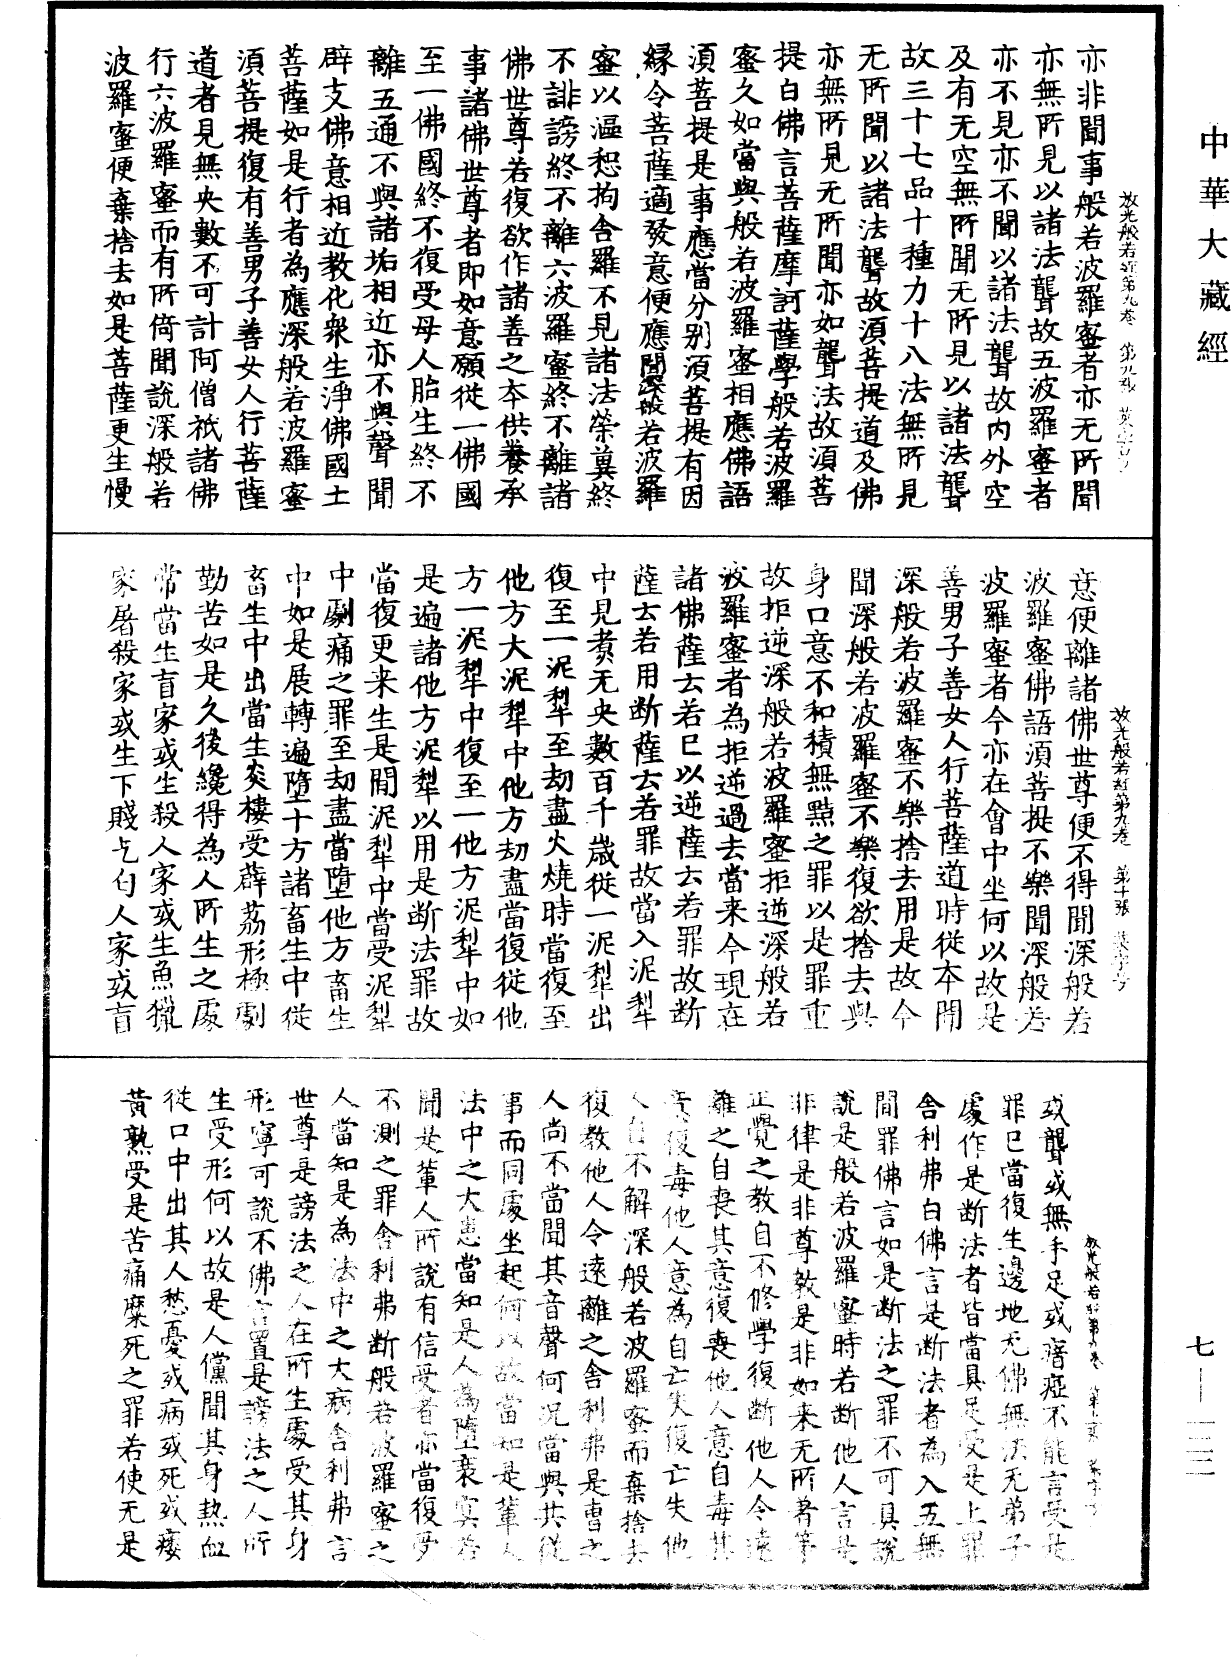 中華大藏經
放光般若經第九卷　第九張　英字号
亦非聞事般若波羅蜜者亦无所聞
亦無所見以諸法聾故五波羅蜜者
亦不見亦不聞以諸法聾故内外空
及有无空無所聞无所見以諸法聾
故三十七品十種力十八法無所見
无所聞以諸法聾故須菩提道及佛
亦無所見无所聞亦如聾法故須菩
提白佛言菩薩摩訶薩學般若波羅
蜜久如當與般若波羅蜜相應佛語
須菩提是事應當分别須菩提有因
緣令菩薩適發意便應聞深般若波羅
蜜以漚惒拘舍羅不見諸法榮冀終
不誹謗終不離六波羅蜜終不離諸
佛世尊若復欲作諸善之本供養承
事諸佛世尊者即如意願從一佛國
至一佛國終不復受母人胎生終不
離五通不與諸垢相近亦不與聲聞
辟支佛意相近教化衆生淨佛國土
菩薩如是行者為應深般若波羅蜜
須菩提復有善男子善女人行菩薩
道者見無央數不可計阿僧祇諸佛
行六波羅蜜而有所倚聞說深般若
波羅蜜便棄捨去如是菩薩更生慢
放光般若經第九卷　第十張　英字号
意便離諸佛世尊便不得聞深般若
波羅蜜佛語須菩提不樂聞深般若
波羅蜜者今亦在會中坐何以故是
善男子善女人行菩薩道時從本聞
深般若波羅蜜不樂捨去用是故今
聞深般若波羅蜜不樂復欲捨去與
身口意不和積無點之罪以是罪重
故拒逆深般若波羅蜜拒逆深般若
波羅蜜者為拒逆過去當来今現在
諸佛薩云若已以逆薩云若罪故断
薩云若用断薩云若罪故當入泥犁
中見煑无央數百千歲從一泥犁出
復至一泥犁至劫盡火燒時當復至
他方大泥犁中他方劫盡當復從他
方一泥犁中復至一他方泥犁中如
是遍諸他方泥犁以用是断法罪故
當復更来生是間泥犁中當受泥犁
中劇痛之罪至劫盡當墮他方畜生
中如是展轉遍墮十方諸畜生中從
畜生中出當生炎樓受薜荔形極劇
勤苦如是久後纔得為人所生之處
常當生盲家或生殺人家或生魚獵
家屠殺家或生下賤乞匃人家或盲
放光般若經第九卷　第十一張　英字号
或聾或無手足或瘖瘂不能言受是
罪已當復生邊地无佛無法无弟子
處作是断法者皆當具足受是上罪
舍利弗白佛言是断法者為入五無
間罪佛言如是断法之罪不可具說
說是般若波羅蜜時若断他人言是
非律是非尊教是非如来无所著等
正覺之教自不修學復断他人令遠
離之自喪其意復喪他人意自毒其
意復毒他人意為自亡失復亡失他
人自不解深般若波羅蜜而棄捨去
復教他人令遠離之舍利弗是曹之
人尚不當聞其音聲何况當與共從
事而同處坐起何以故當知是輩人
法中之大患當知是人為墮衰冥若
聞是輩人所說有信受者亦當復受
不測之罪舍利弗断般若波羅蜜之
人當知是為法中之大病舍利弗言
世尊是謗法之人在所生處受其身
形寧可說不佛言置是謗法之人所
生受形何以故是人儻聞其身熱血
從口中出其人愁憂或病或死或痿
黄熟受是苦痛糜死之罪若使无是
七—一二二